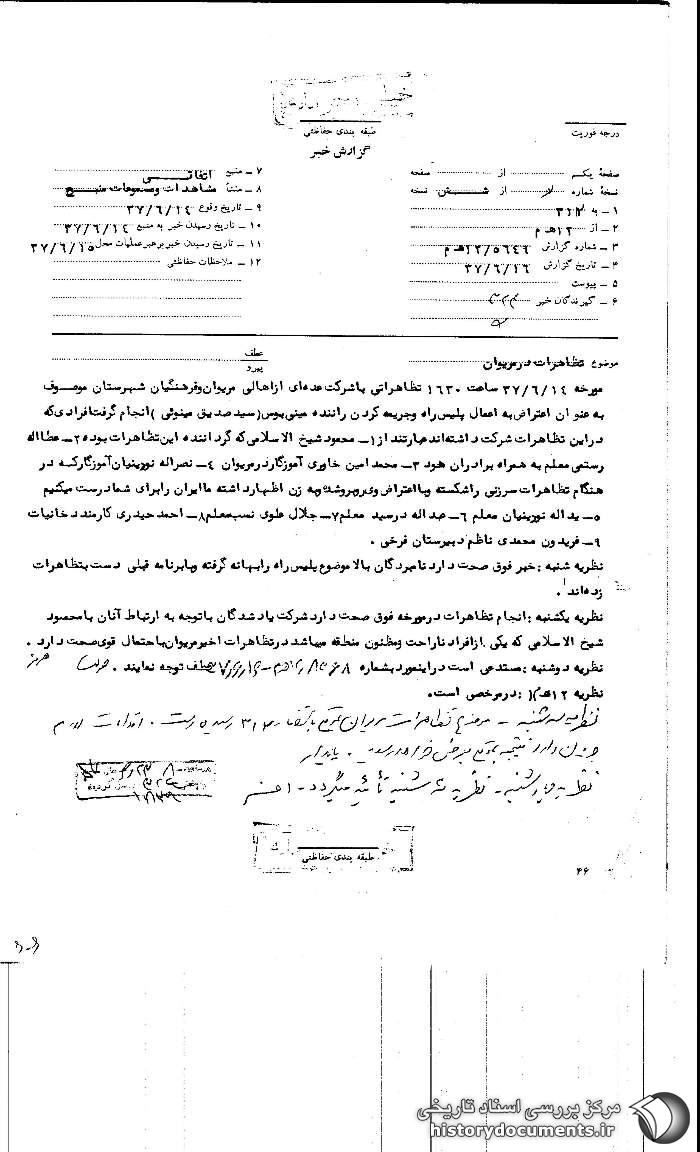 طبقه بندی حفاظتی
گزارش خبر
درجه فوریت
صفحهٔ یکم از صفحه
نسخهٔ شماره از شش نسخه
۱ - به ۳۱۲
۲ - از ۱۲ هـ م
۳ - شماره گزارش ۱۲/۵۶۴۶ هـ م
۴ - تاریخ گزارش ۳۷/۶/۱۶
۵ - پیوست
۶ - گیرندگان خبر
۷ - منبع اتفاقی
۸ - منشأ مشاهدات ومسموعات منبع
۹ - تاریخ وقوع ۳۷/۶/۱۴
۱۰ - تاریخ رسیدن خبر به منبع ۳۷/۶/۱٤
۱۱ - تاریخ رسیدن خبر برهبر عملیات محل ۳۷/۶/۱۵
۱۲ - ملاحظات حفاظتی
موضوع تظاهرات درمریوان
عطف
پیرو
مورخه ۳۷/۶/۱۴ ساعت ۱۶۳۰ تظاهراتی باشرکت عده‌ای ازاهالی مریوان وفرهنگیان شهرستان موصوف
به عنوان اعتراض به اعمال پلیس راه وجریمه کردن راننده مینی بوس (سید صدیق مینوئی) انجام گرفت افرادی که
دراین تظاهرات شرکت داشته‌اند عبارتند از ۱- محمود شیخ الاسلامی که گرداننده این تظاهرات بوده ۲- عطااله
رستمی معلم به همراه برادران خود ۳- محمد امین خاوری آموزگار درمریوان ۴- نصراله نوزینیان آموزگار که در
هنگام تظاهرات سرزنی راشکسته وبااعتراض وی روبروشده به زن اظهارداشته ما ایران رابرای شما درست میکنیم
۵- یداله نوزینیان معلم ۶- عبداله درسید معلم ۷- جلال علوی نسب معلم ۸- احمد حیدری کارمند دخانیات
۹- فریدون محمدی ناظم دبیرستان فرخی .
نظریه شنبه : خبر فوق صحت دارد نامبردگان بالا موضوع پلیس راه رابهانه گرفته وبابرنامه قبلی دست بتظاهرات
زده‌اند .
نظریه یکشنبه : انجام تظاهرات درمورخه فوق صحت دارد شرکت یادشدگان باتوجه به ارتباط آنان بامحمود
شیخ الاسلامی که یکی ازافراد ناراحت ومظنون منطقه میباشد درتظاهرات اخیر مریوان باحتمال قوی صحت دارد .
نظریه دوشنبه : مستدعی است دراینمورد بشماره عطف توجه نمایند .
نظریه ۱۲ هـ م : درمرخصی است.
نظریه سه شنبه - موضوع تظاهرات مریوان
نظریه چهارشنبه - نظریه سه شنبه تأئید میگردد -
طبقه بندی حفاظتی
۴۶
مرکز بررسی اسناد تاریخی
historydocuments.ir